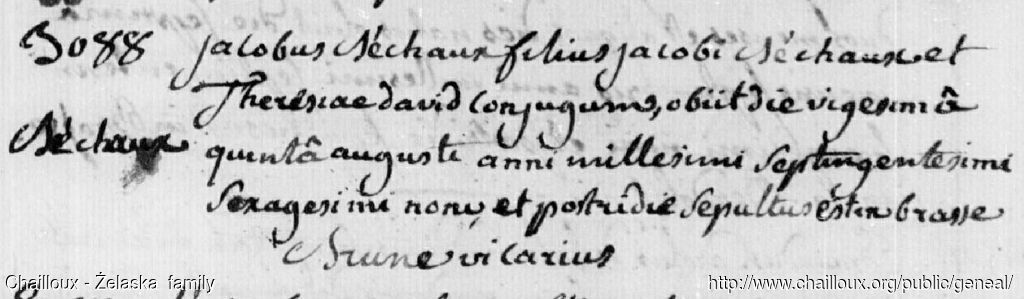 3088 jacobus Séchaux filius jacobi Séchaux et
Theresiae david conjugum, obiit die vigesimâ
Séchaux
quintâ augusti anni millesimi septingentesimi
sexagesimi noni, et postridie sepultus est in brasse
Brune vicarius
Chailloux - Żelaska family
http://www.chailloux.org/public/geneal/